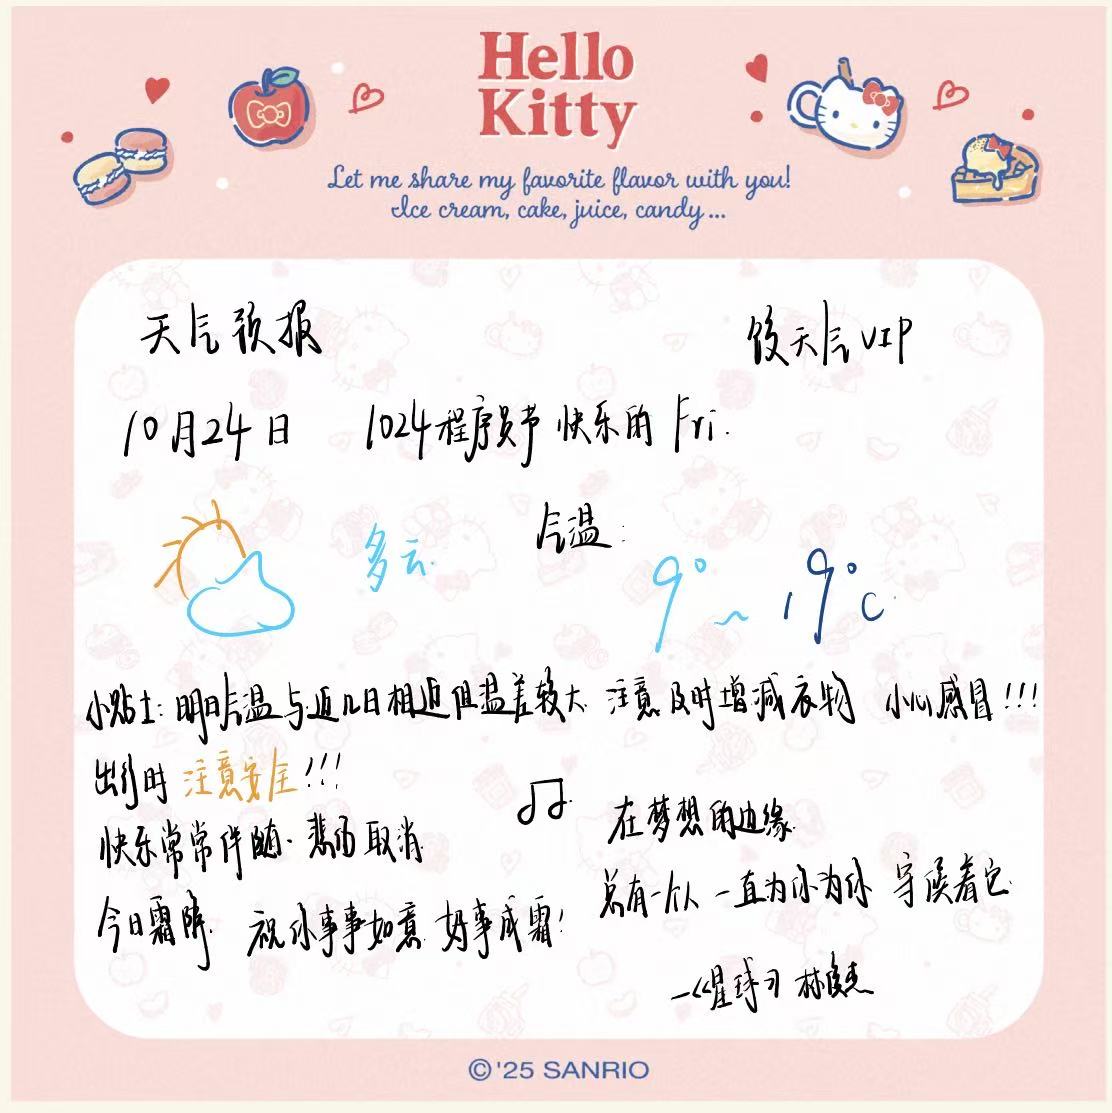 Hello
Kitty
Let me share my favorite flavor with you!
Ice cream, cake, juice, candy...
天气预报
饺天气VIP
10月24日 1024程序员节 快乐的 Fri.
气温:
多云
9°~19°C
小贴士: 明日气温与近几日相近但温差较大 注意及时增减衣物 小心感冒!!!
出行时 注意安全!!!
快乐常常伴随 悲伤取消
在梦想的边缘
总有一个人 一直为你为你 守候着它
今日霜降 祝你事事如意 好事成霜!
—《星球》林俊杰
©'25 SANRIO